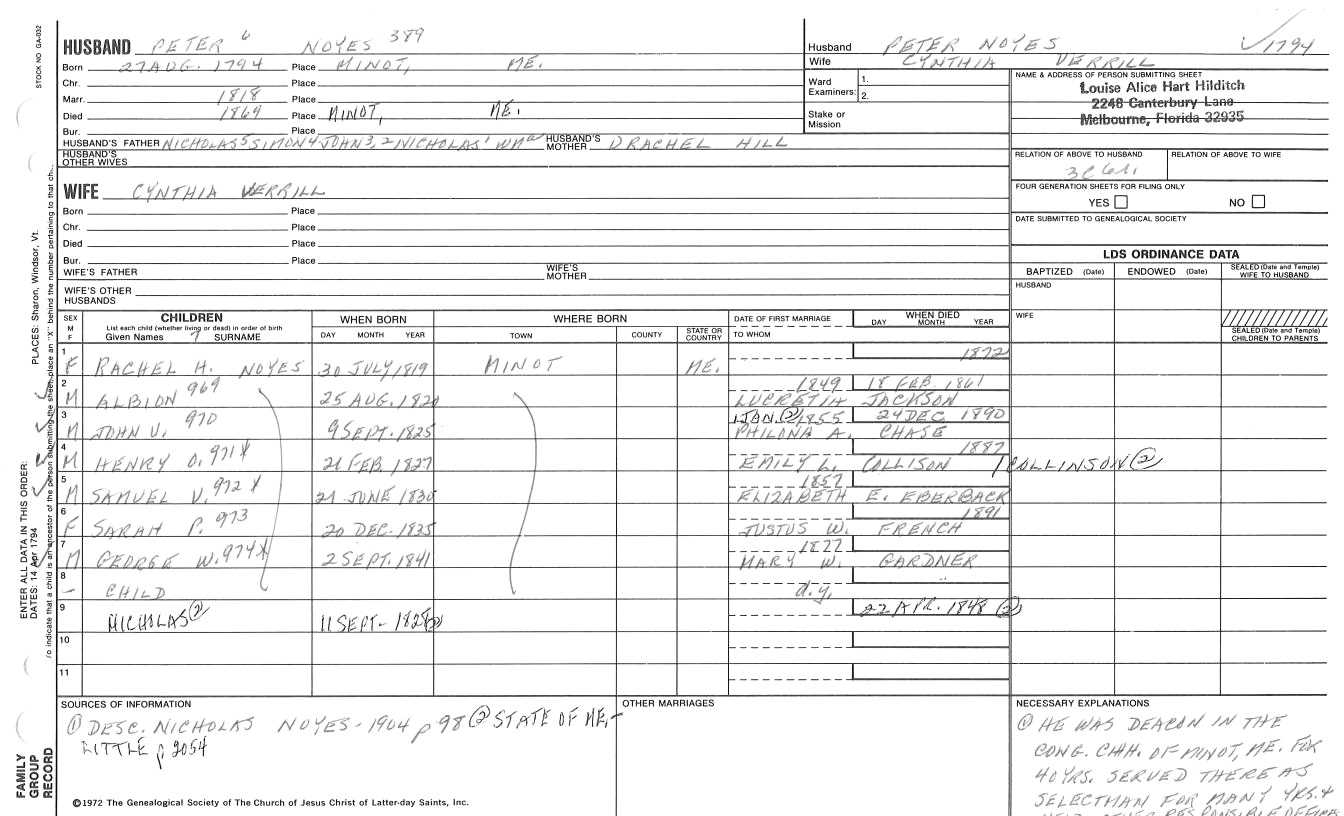 STOCK NO GA-032
HUSBAND PETER 6 NOYES 389
Born 27 AUG. 1794 Place MINOT, ME.
Chr. Place
Marr. 1818 Place
Died 1869 Place MINOT, ME.
Bur. Place
HUSBAND'S FATHER NICHOLAS 5 SIMON 4 JOHN 3, 2 NICHOLAS' Wm HUSBAND'S MOTHER RACHEL HILL
HUSBAND'S OTHER WIVES
Husband PETER NOYES 1794
Wife CYNTHIA VERRILL
Ward Examiners: 1. 2.
Stake or Mission
NAME & ADDRESS OF PERSON SUBMITTING SHEET
Louise Alice Hart Hilditch
2246 Canterbury Lane
Melbourne, Florida 32935
RELATION OF ABOVE TO HUSBAND RELATION OF ABOVE TO WIFE
3C 6r.
FOUR GENERATION SHEETS FOR FILING ONLY
YES NO
DATE SUBMITTED TO GENEALOGICAL SOCIETY
WIFE CYNTHIA VERRILL
Born Place
Chr. Place
Died Place
Bur. Place
WIFE'S FATHER WIFE'S MOTHER
WIFE'S OTHER HUSBANDS
LDS ORDINANCE DATA
BAPTIZED (Date) ENDOWED (Date) SEALED (Date and Temple) WIFE TO HUSBAND
HUSBAND
WIFE
SEALED (Date and Temple) CHILDREN TO PARENTS
SEX M F CHILDREN List each child (whether living or dead) in order of birth Given Names 7 SURNAME
WHEN BORN DAY MONTH YEAR
WHERE BORN TOWN COUNTY STATE OR COUNTRY
DATE OF FIRST MARRIAGE TO WHOM
WHEN DIED DAY MONTH YEAR
1 F RACHEL H. NOYES 30 JULY 1819 MINOT ME. 1872
2 M ALBION 969 25 AUG. 1820 1849 18 FEB. 1861 LUCRETIA JACKSON
3 M JOHN V. 970 9 SEPT. 1825 1 JAN. (2) 1855 24 DEC 1890 PHILONA A. CHASE
4 M HENRY O. 971 X 21 FEB. 1827 1887 EMILY L. COLLISON / COLLINSON (2)
5 M SAMUEL V. 972 X 21 JUNE 1830 1857 ELIZABETH E. EBERBACK
6 F SARAH P. 973 20 DEC. 1835 1891 JUSTUS W. FRENCH
7 M GEORGE W. 974 X 2 SEPT. 1841 1877 MARY W. GARDNER
8 - CHILD d.y.
9 NICHOLAS (2) 11 SEPT- 1828 (2) 22 APR. 1848 (2)
10
11
SOURCES OF INFORMATION
(1) DESC. NICHOLAS NOYES - 1904 p 98 (2) STATE OF ME.-
LITTLE p 2054
OTHER MARRIAGES
NECESSARY EXPLANATIONS
@ HE WAS DEACON IN THE
CONG. CHH. OF MINOT, ME. FOR
40 YRS. SERVED THERE AS
SELECTMAN FOR MANY YRS. &
HELD OTHER RESPONSIBLE
©1972 The Genealogical Society of The Church of Jesus Christ of Latter-day Saints, Inc.
FAMILY
GROUP
RECORD
ENTER ALL DATA IN THIS ORDER:
DATES: 14 Apr 1794
PLACES: Sharon, Windsor, Vt.
To indicate that a child is an ancestor of the person submitting the sheet, place an "X" behind the number pertaining to that